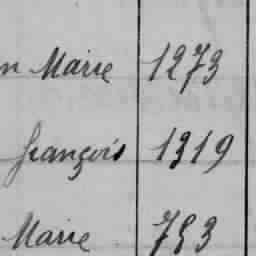 n Marie 1273
françois 1319
Marie 753